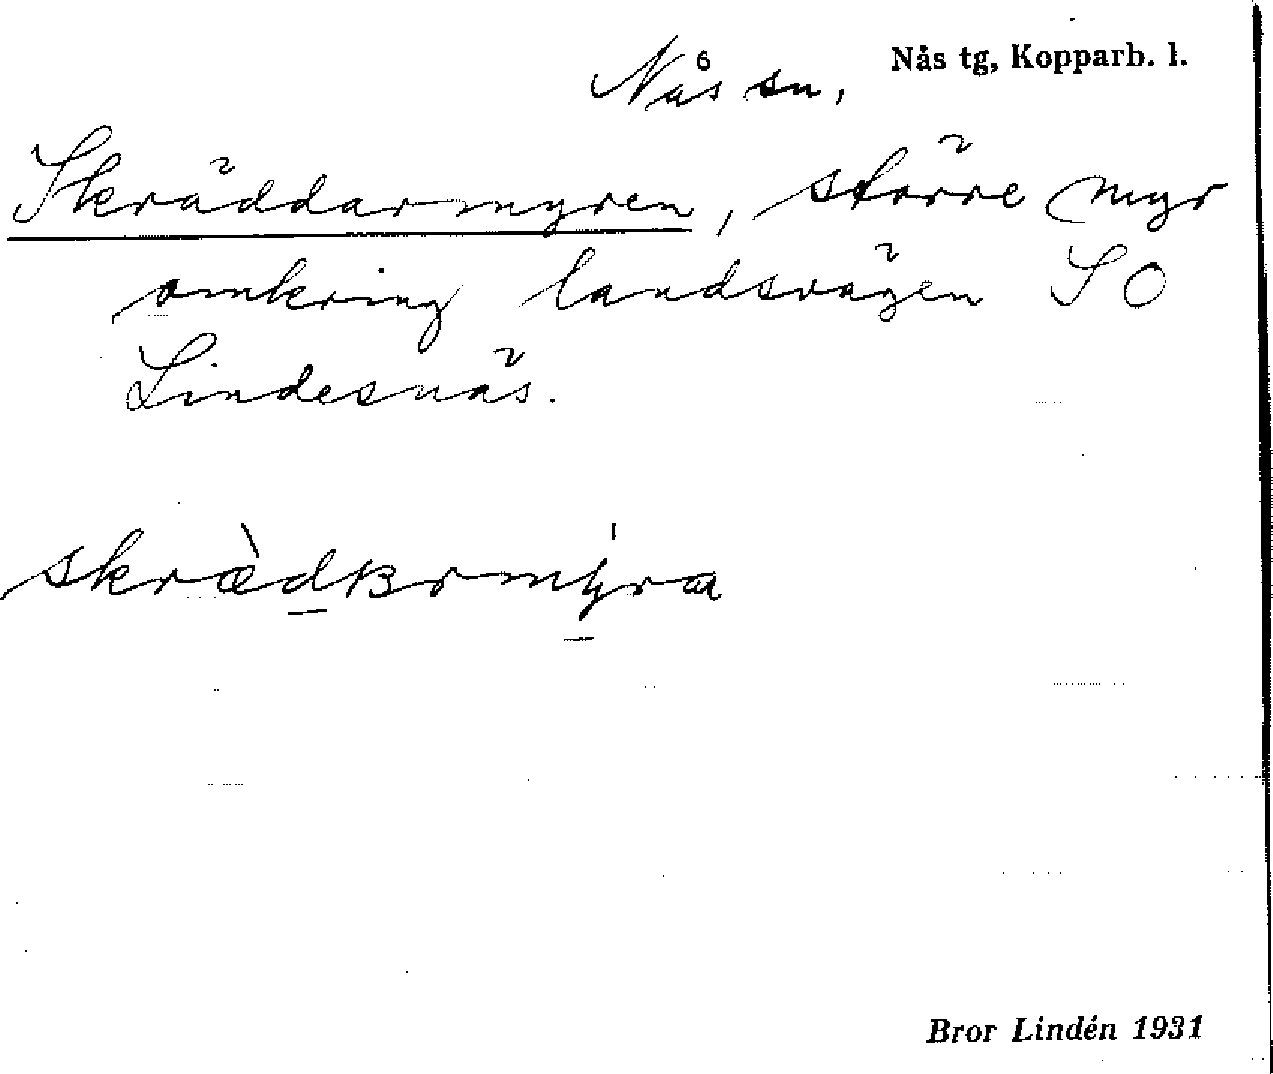 Nås sn, Nås tg, Kopparb. l.
Skräddarmyren, större myr
omkring landsvägen SO
Lindesnäs.
skræ̀dʙrmýra
Bror Lindén 1931